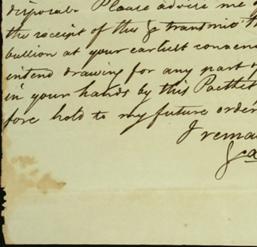 disposal. Please advise me o
the receipt of this & transmit th
bullion at your earliest conven
intend drawing for any part of
in your hands by this Packet
fore hold to my future order
I remai